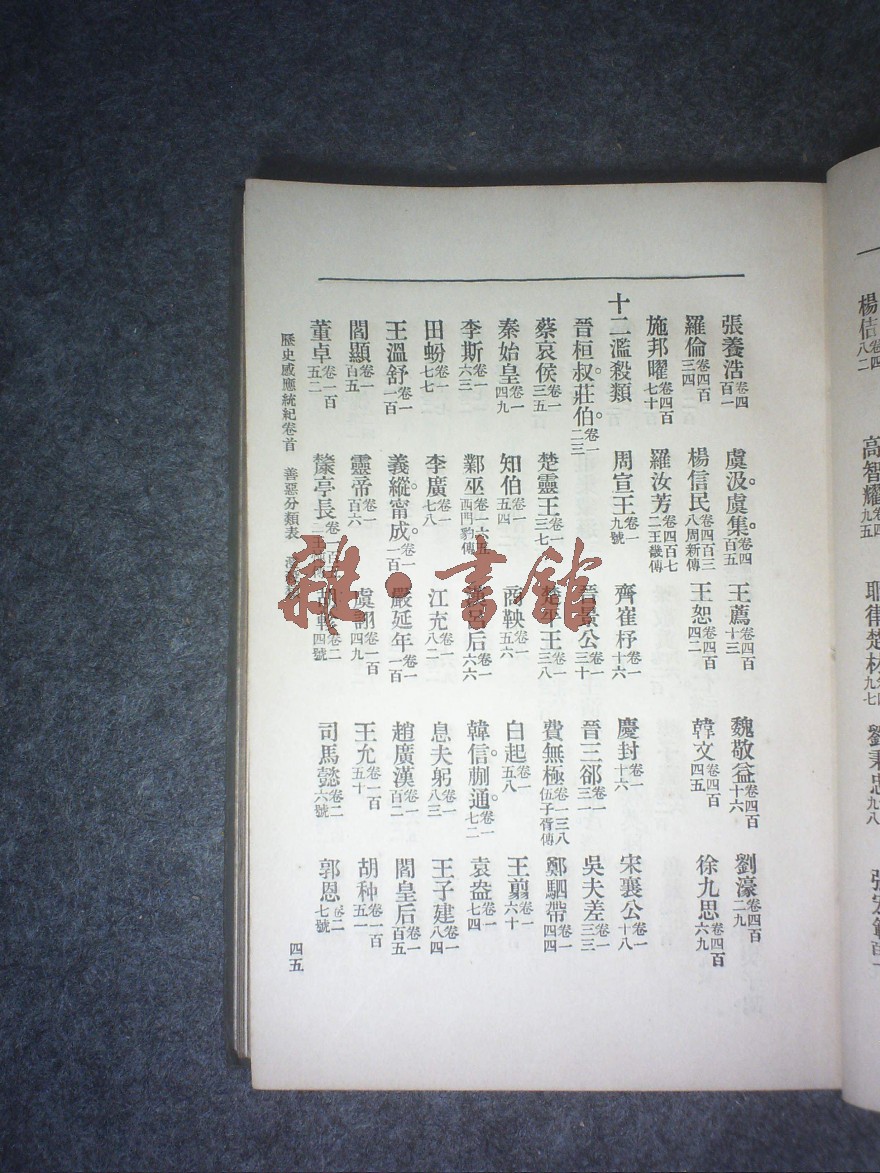 楊佶卷四八二 高智耀卷四九五 耶律楚材九七 劉秉忠九八
張養浩卷四百一 虞汲。虞集。卷四百五 王薦卷四百十三 魏敬益卷四百十六 劉濠卷四百二九
羅倫卷四百三四 楊信民卷四百三八周新傳 王恕卷四百四二 韓文卷四百四五 徐九思卷四百六九
施邦曜卷四百七十 羅汝芳卷四百七二王畿傳
十二濫殺類 周宣王卷一九號 齊崔杼卷一十六 慶封卷一十六 宋襄公卷一十八
晉桓叔。莊伯。卷一二三 晉景公卷一三十 晉三郤卷一三一 吳夫差卷一三三
蔡哀侯卷一三五 楚靈王卷一三七 楚平王卷一三八 費無極卷一三八伍子胥傳 鄭駟帶卷一四四
秦始皇卷一四九 知伯卷一五四 商鞅卷一五六 白起卷一五八 王翦卷一六十
李斯卷一六三 鄴巫卷一六五西門豹傳 呂后卷一六六 韓信。蒯通。卷一七二 袁盎卷一七四
田蚡卷一七七 李廣卷一七八 江充卷一八二 息夫躬卷一八三 王子建卷一八四
王溫舒卷一一百 義縱。甯成。卷一一百 嚴延年卷一一百 趙廣漢卷一百二 閻皇后卷一百五
閻顯卷一百五 靈帝卷一百六 虞詡卷一百四九 王允卷一百五十 胡种卷一百五一
董卓卷一百五二 斄亭長卷一百 卷二四號 司馬懿卷二六號 郭恩卷二七號
歷史感應統紀卷首 善惡分類表 四五
雜·書館